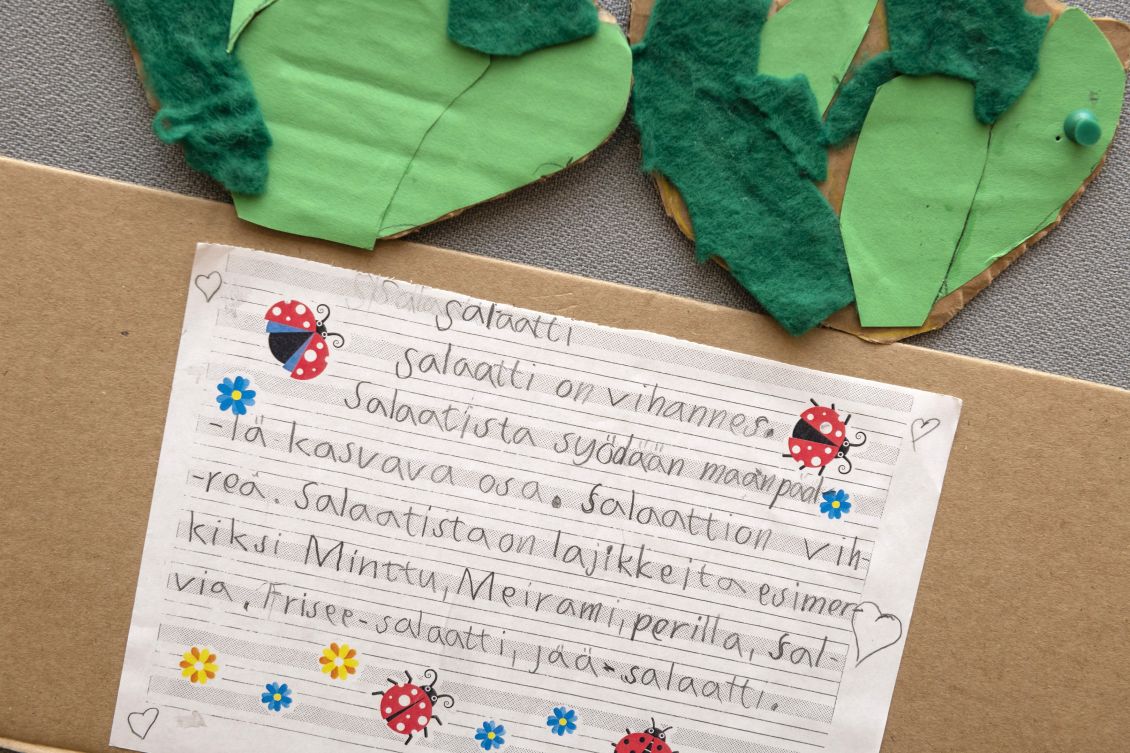 salaatti
salaatti on vihannes.
Salaatista syödään maanpääl-
-lä kasvava osa. Salaattion vih-
-reä. Salaatista on lajikkeita esimer-
kiksi Minttu, Meirami, perilla, sal-
via. Frisee-salaatti, jää-salaatti.